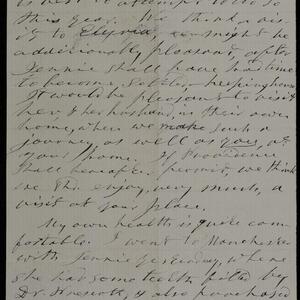 is best to attempt to do so
this year. We think a vis-
it to Elyria, might be
additionally pleasant, after
Jennie shall have had time
to become settled, housekeeping.
It would be pleasant to visit
her, & her husband, in their own
home, when we make such a
journey, as well as you, at
your home. If Providence
shall hereafter permit, we think
we shd enjoy, very much, a
visit at your place.
My own health is quite com-
fortable. I went to Manchester
with Jennie yesterday, where
she had some teeth filled by
Dr. Prescott, & also purchased